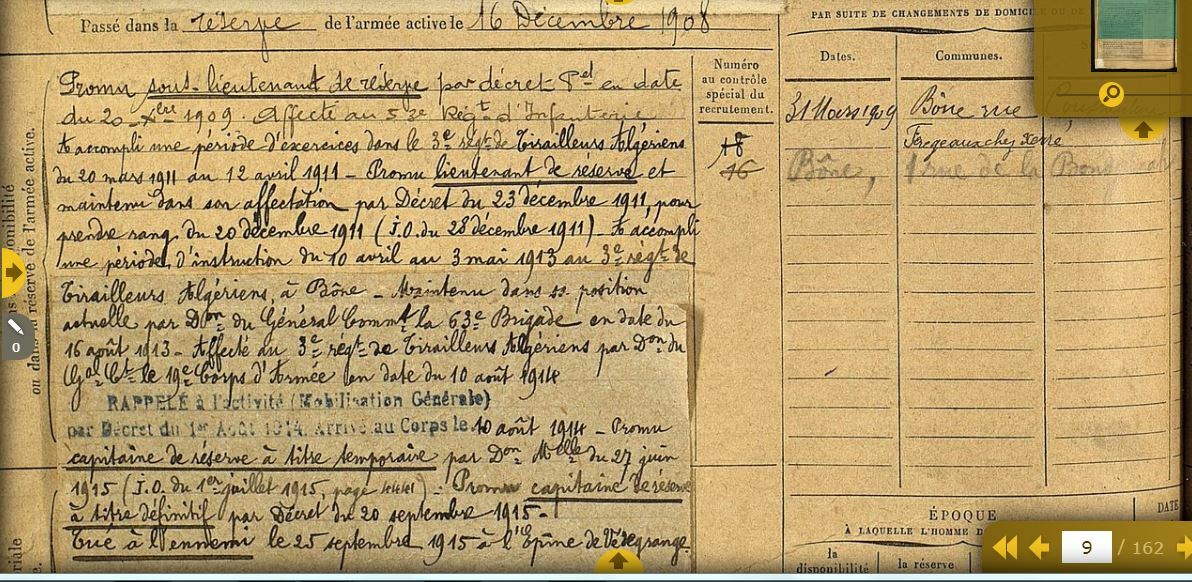 Passé dans la réserve de l'armée active le 16 Décembre 1908
Promu sous-lieutenant de réserve par décret Pel en date
du 20 Xbre 1909. Affecté au 3e Régt d'Infanterie.
A accompli une période d'exercices dans le 3e régt de Tirailleurs Algériens
du 20 mars 1911 au 12 avril 1911 - Promu lieutenant de réserve et
maintenu dans son affectation par Décret du 23 décembre 1911, pour
prendre rang du 20 décembre 1911 (J.O. du 28 décembre 1911) - A accompli
une période d'instruction du 10 avril au 3 mai 1913 au 3e régt de
Tirailleurs Algériens, à Bône - Maintenu dans sa position
actuelle par Don du Général Commt la 63e Brigade en date du
16 août 1913 - Affecté au 3e régt de Tirailleurs Algériens par Don du
Gal Ct le 19e Corps d'Armée en date du 10 août 1914
RAPPELÉ à l'activité (Mobilisation Générale)
par Décret du 1er Août 1914. Arrivé au Corps le 10 août 1914 - Promu
capitaine de réserve à titre temporaire par Don Melle du 27 juin
1915 (J.O. du 1er juillet 1915, page 4441) - Promu capitaine de réserve
à titre définitif par Décret du 20 septembre 1915 -
Tué à l'ennemi le 25 septembre 1915 à l'Epine de Védegrange.
ou dans la réserve de l'armée active.
Numéro
au contrôle
spécial du
recrutement.
18
16
PAR SUITE DE CHANGEMENTS DE DOMICILE OU DE
Dates.
Communes.
31 Mars 1909
Bône rue
Fregeaux chez
Bône, 1 rue de la
ÉPOQUE
À LAQUELLE L'HOMME D
DATE
la
disponibilité
la réserve
0
9 / 162